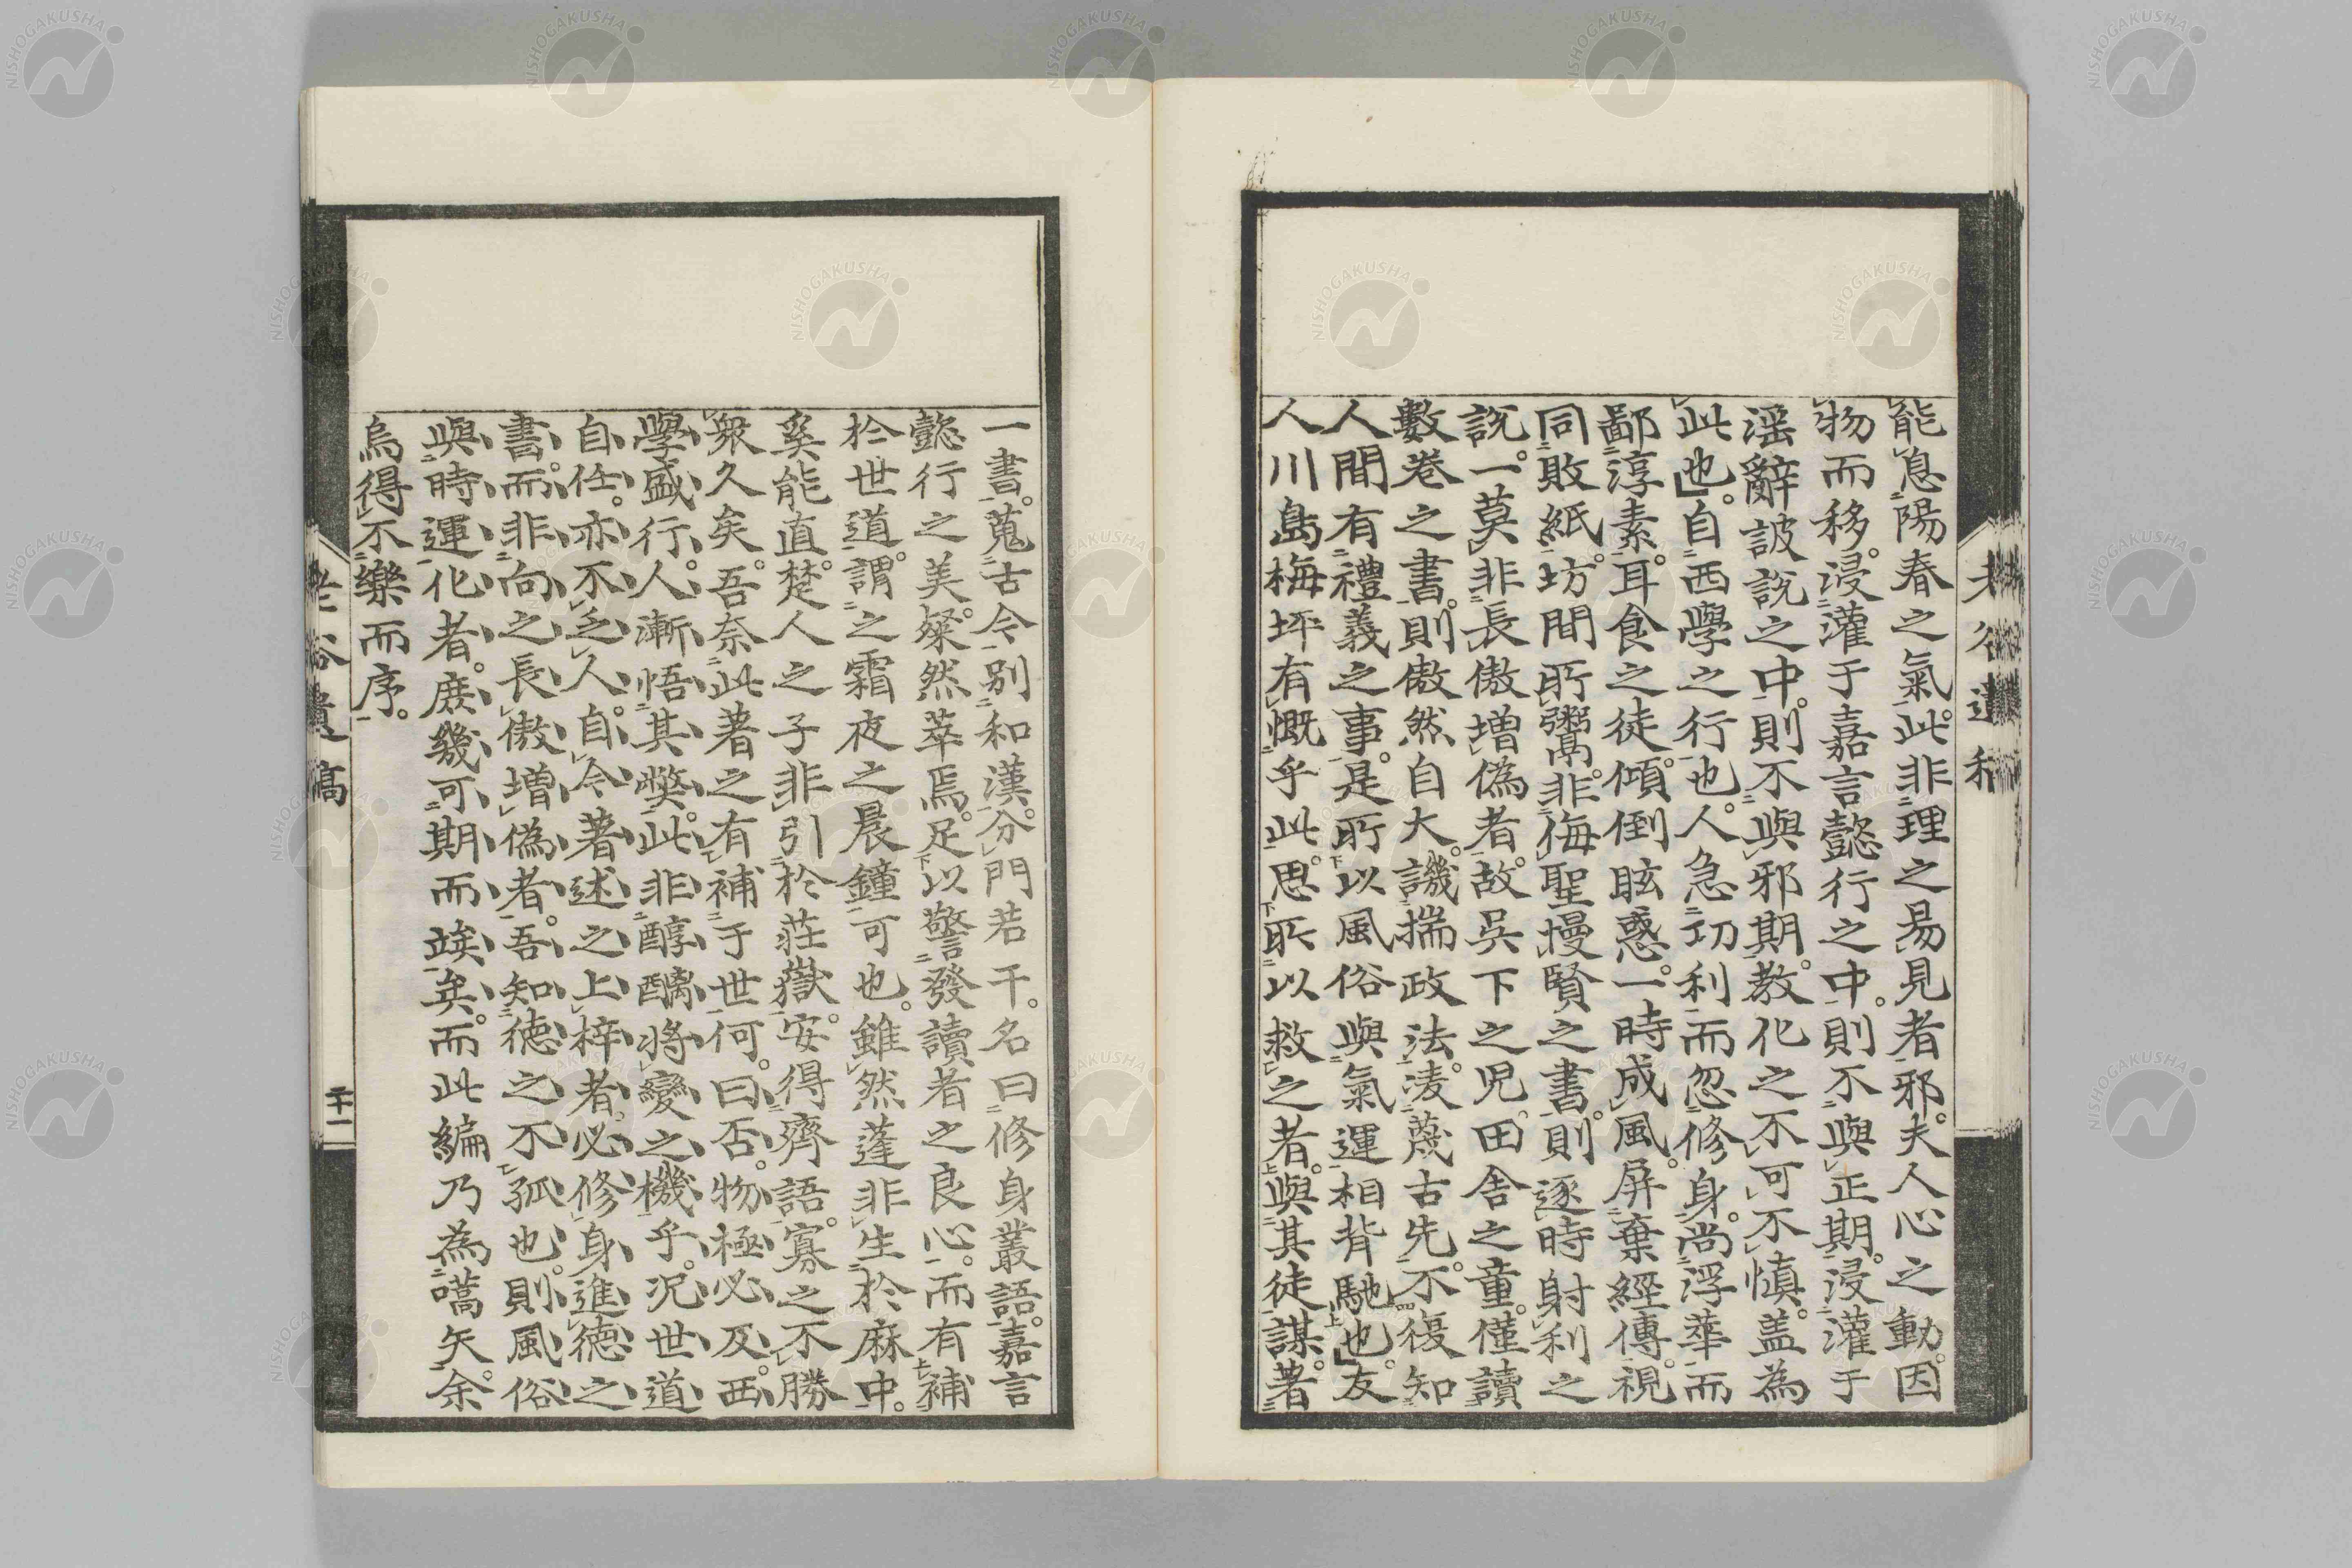 能息陽春之氣。此非理之昜見者邪。夫人心之動。因
物而移。浸灌于嘉言懿行之中。則不與正期。浸灌于
淫辭詖說之中。則不與邪期。教化之不可不慎。盖為
此也。」自西學之行也。人急功利而忽修身。尚浮華而
鄙淳素。耳食之徒。傾倒眩惑。一時成風。屏棄經傳。視
同敗紙。坊間所鬻。非侮聖慢賢之書。則逐時射利之
說。一莫非長傲增偽者。故吳下之児。田舎之童。僅讀
數巻之書。則傲然自大。譏揣政法。凌蔑古先。不復知
人間有禮義之事。是所以風俗與氣運相背馳也。」友
人川島梅坪有慨乎此。思所以救之者。與其徒謀。著
一書。蒐古今。別和漢。分門若干。名曰修身叢語。嘉言
懿行之美。粲然萃焉。足以警發讀者之良心。而有補
於世道。謂之霜夜之晨鐘可也。雖然蓬非生於麻中。
奚能直。楚人之子非引於莊嶽。安得齊語。寡之不勝
衆久矣。吾奈此著之有補于世何。曰否。物極必反。西
學盛行。人漸悟其弊。此非醇醨將變之機乎。況世道
自任。亦不乏人。自今著述之上梓者。必修身進德之
書。而非向之長傲增偽者。吾知德之不孤也。則風俗
與時運化者。庶幾可期而竢矣。而此編乃為嚆矢。余
烏得不樂而序。
老谷遺稿
二十一
NISHOGAKUSHA